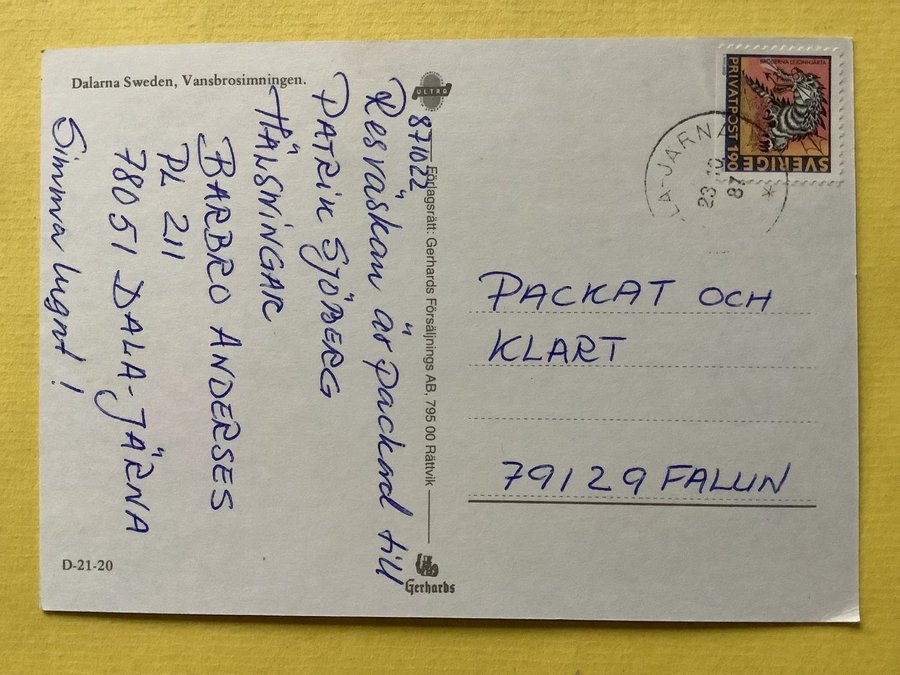 Dalarna Sweden, Vansbrosimningen.
ULTRA
871022
Resväskan är packad till
PATRIK SJÖBERG
HÄLSNINGAR
BARBRO ANDERSES
PL 211
78051 DALA-JÄRNA
Simma lugnt!
D-21-20
Förlagsrätt: Gerhards Försäljnings AB, 795 00 Rättvik
Gerhards
BRÖDERNA LEJONHJÄRTA
PRIVATPOST 1.90
SVERIGE
LA-JÄRNA
23 10
87
*
PACKAT OCH
KLART
79129 FALUN